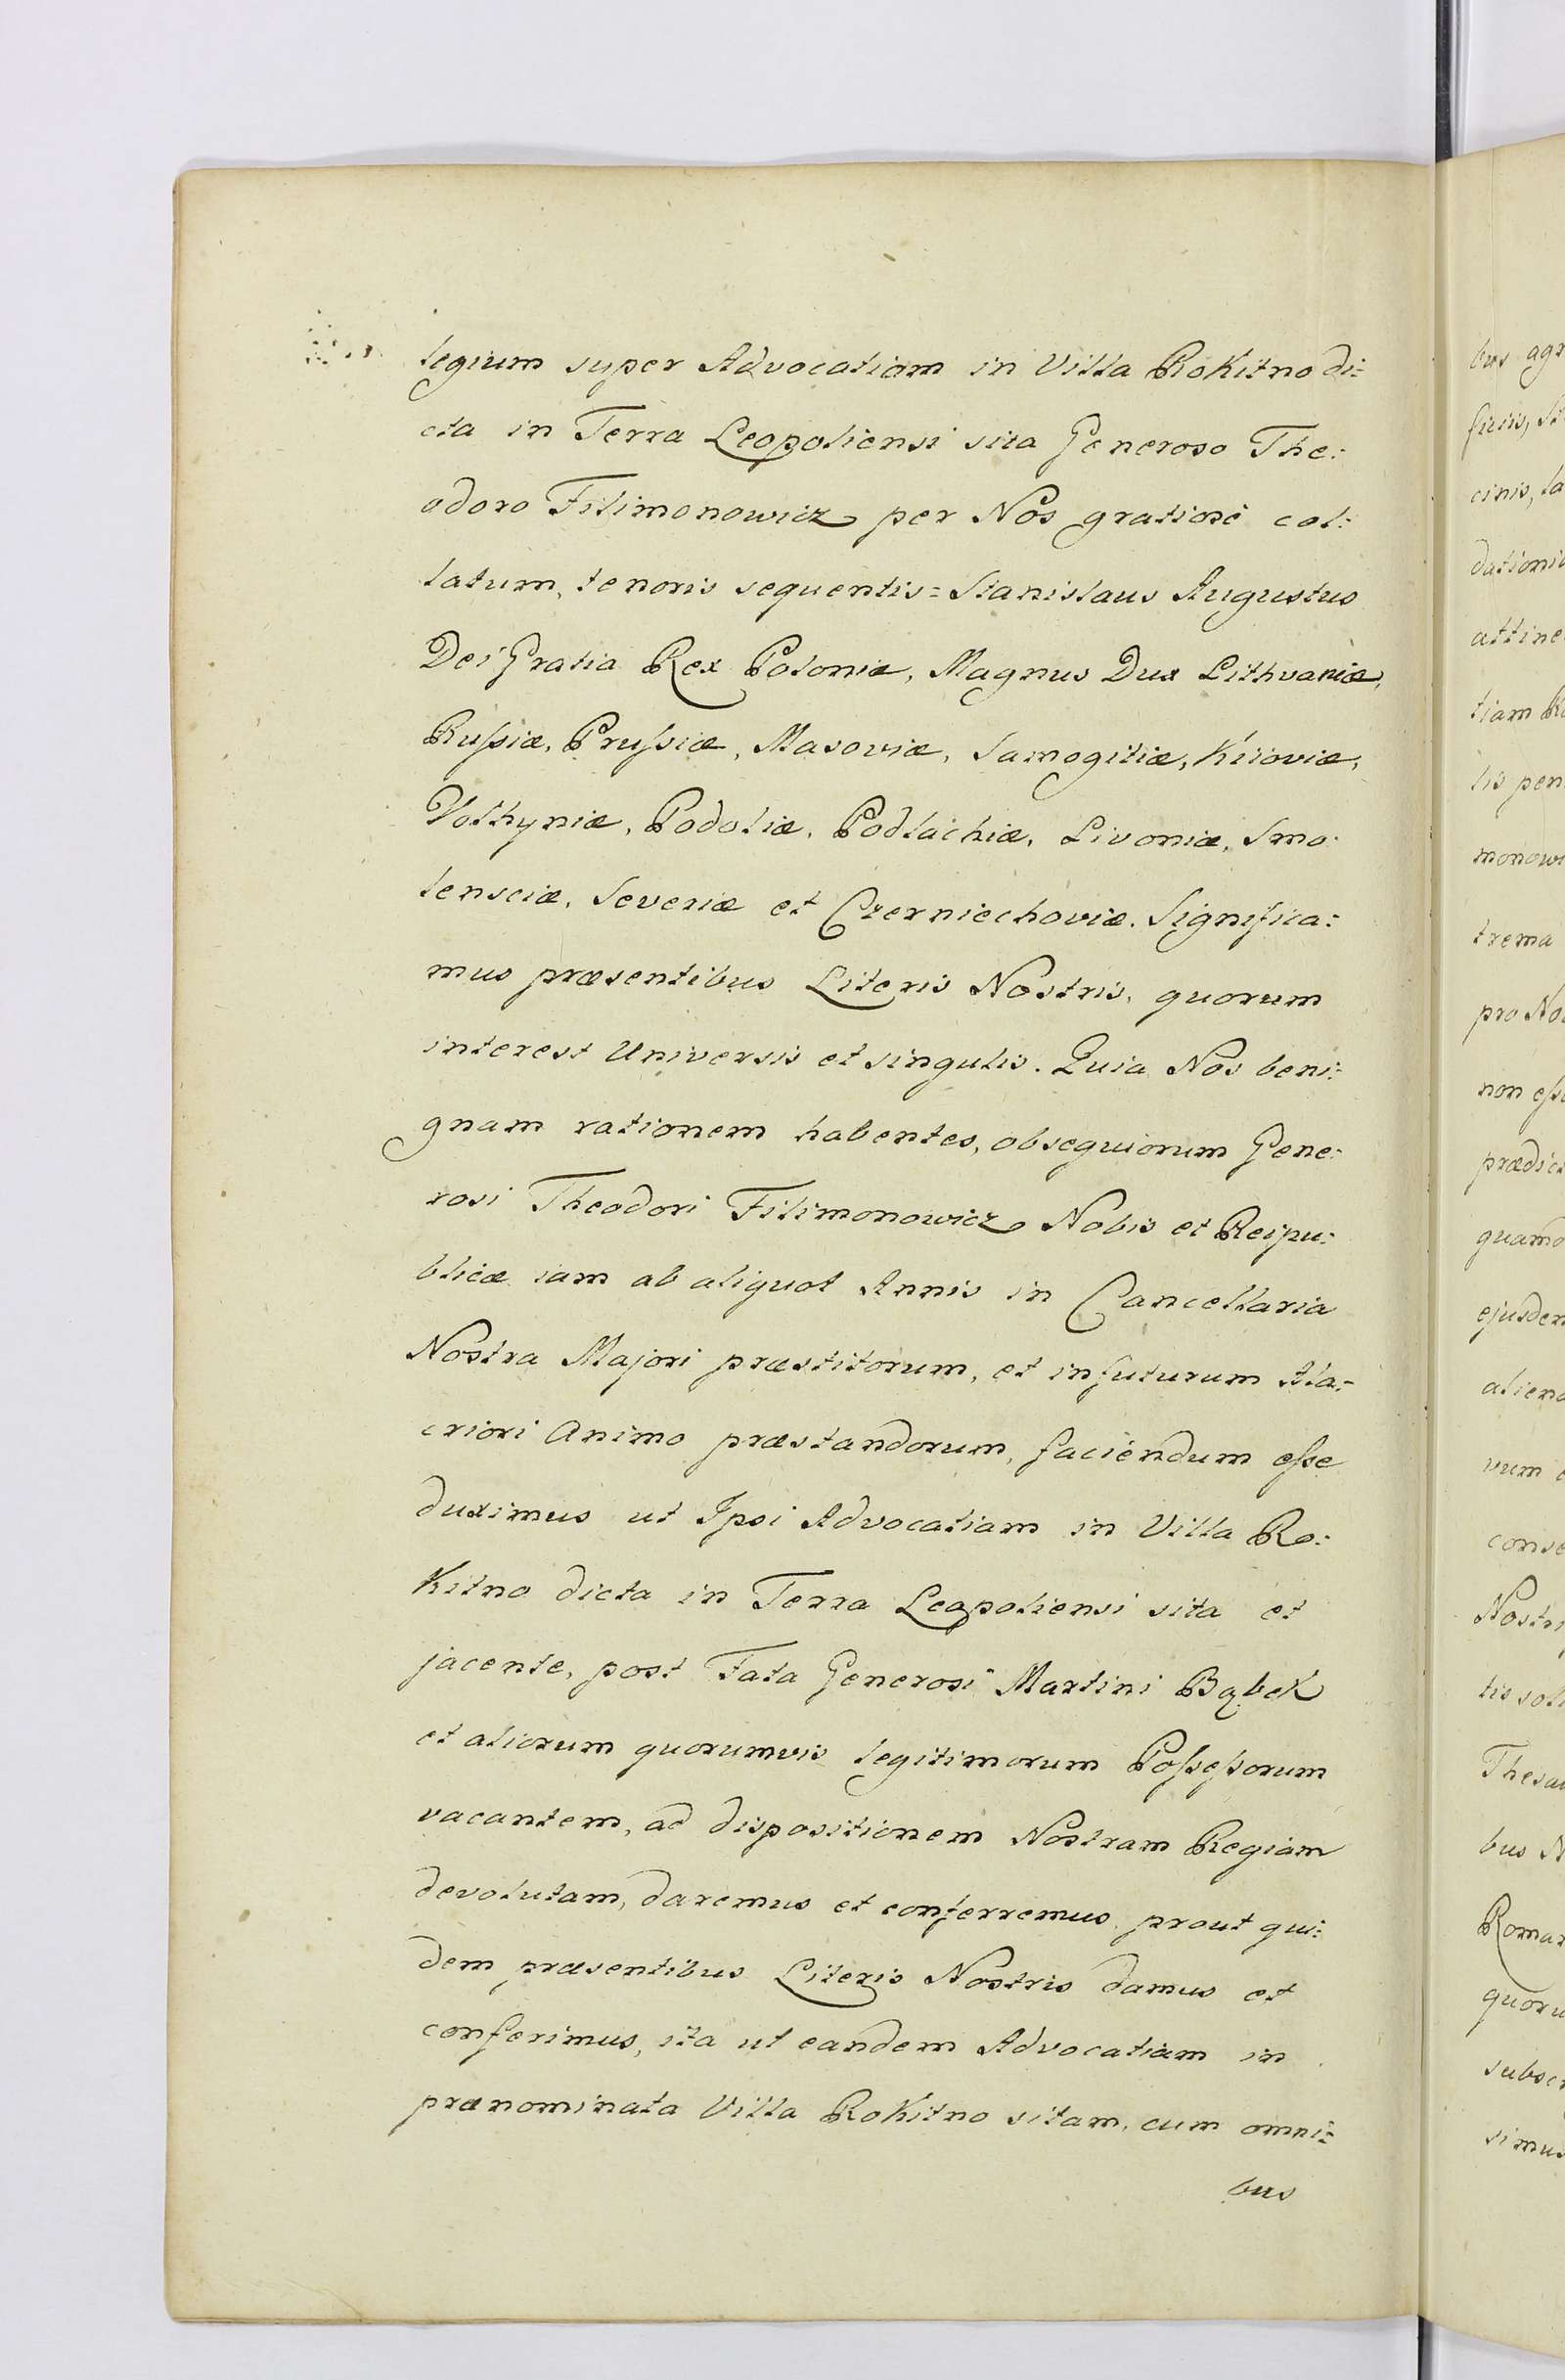 legium super Advocatiam in Villa Rokitno di=
cta in Terra Leopoliensi sita Generoso The=
odoro Filimonowicz per Nos gratiosè col=
latum, tenoris sequentis = Stanislaus Augustus
Dei Gratia Rex Poloniæ, Magnus Dux Lithvaniæ,
Rußiæ, Prußiæ, Masoviæ, Samogitiæ, Kijoviæ,
Volhyniæ, Podoliæ, Podlachiæ, Livoniæ, Smo=
lensciæ, Severiæ et Czerniechoviæ. Significa=
mus præsentibus Literis Nostris, quorum
interest Universis et singulis. Quia Nos beni=
gnam rationem habentes, obsequiorum Gene=
rosi Theodori Filimonowicz Nobis et Reipu=
blicæ iam ab aliquot Annis in Cancellaria
Nostra Majori præstitorum, et in futurum Ala=
criori Animo præstandorum, faciendum eße
duximus ut Ipsi Advocatiam in Villa Ro=
kitno dicta in Terra Leopoliensi sita et
jacente, post Fata Generosi Martini Bąbek
et aliorum quorumvis legitimorum Poßeßorum
vacantem, ad dispositionem Nostram Regiam
devolutam, daremus et conferremus prout qui=
dem præsentibus Literis Nostris damus et
conferimus, ita ut eandem Advocatiam in
prænominata Villa Rokitno sitam, cum omni=
bus